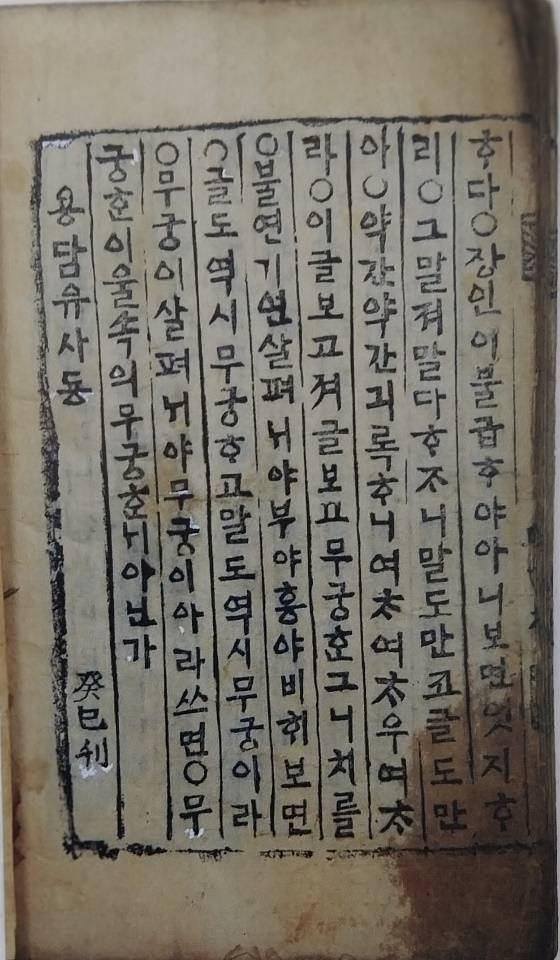 ᄒᆞ다○장인이불급ᄒᆞ야아니보면엇지ᄒᆞ
리○그말져말다ᄒᆞᄌᆞ니말도만코글도만
아○약간약간긔록ᄒᆞ니여ᄎᆞ여ᄎᆞ우여ᄎᆞ
라○이글보고져글보고무궁ᄒᆞᆫ그니치를
○불연기연살펴ᄂᆡ야부야흥야비ᄒᆡ보면
○글도역시무궁ᄒᆞ고말도역시무궁이라
○무궁이살펴ᄂᆡ야무궁이아라쓰면○무
궁ᄒᆞᆫ이울속의무궁ᄒᆞᆫᄂᆡ아닌가
용담유사동 癸巳刊